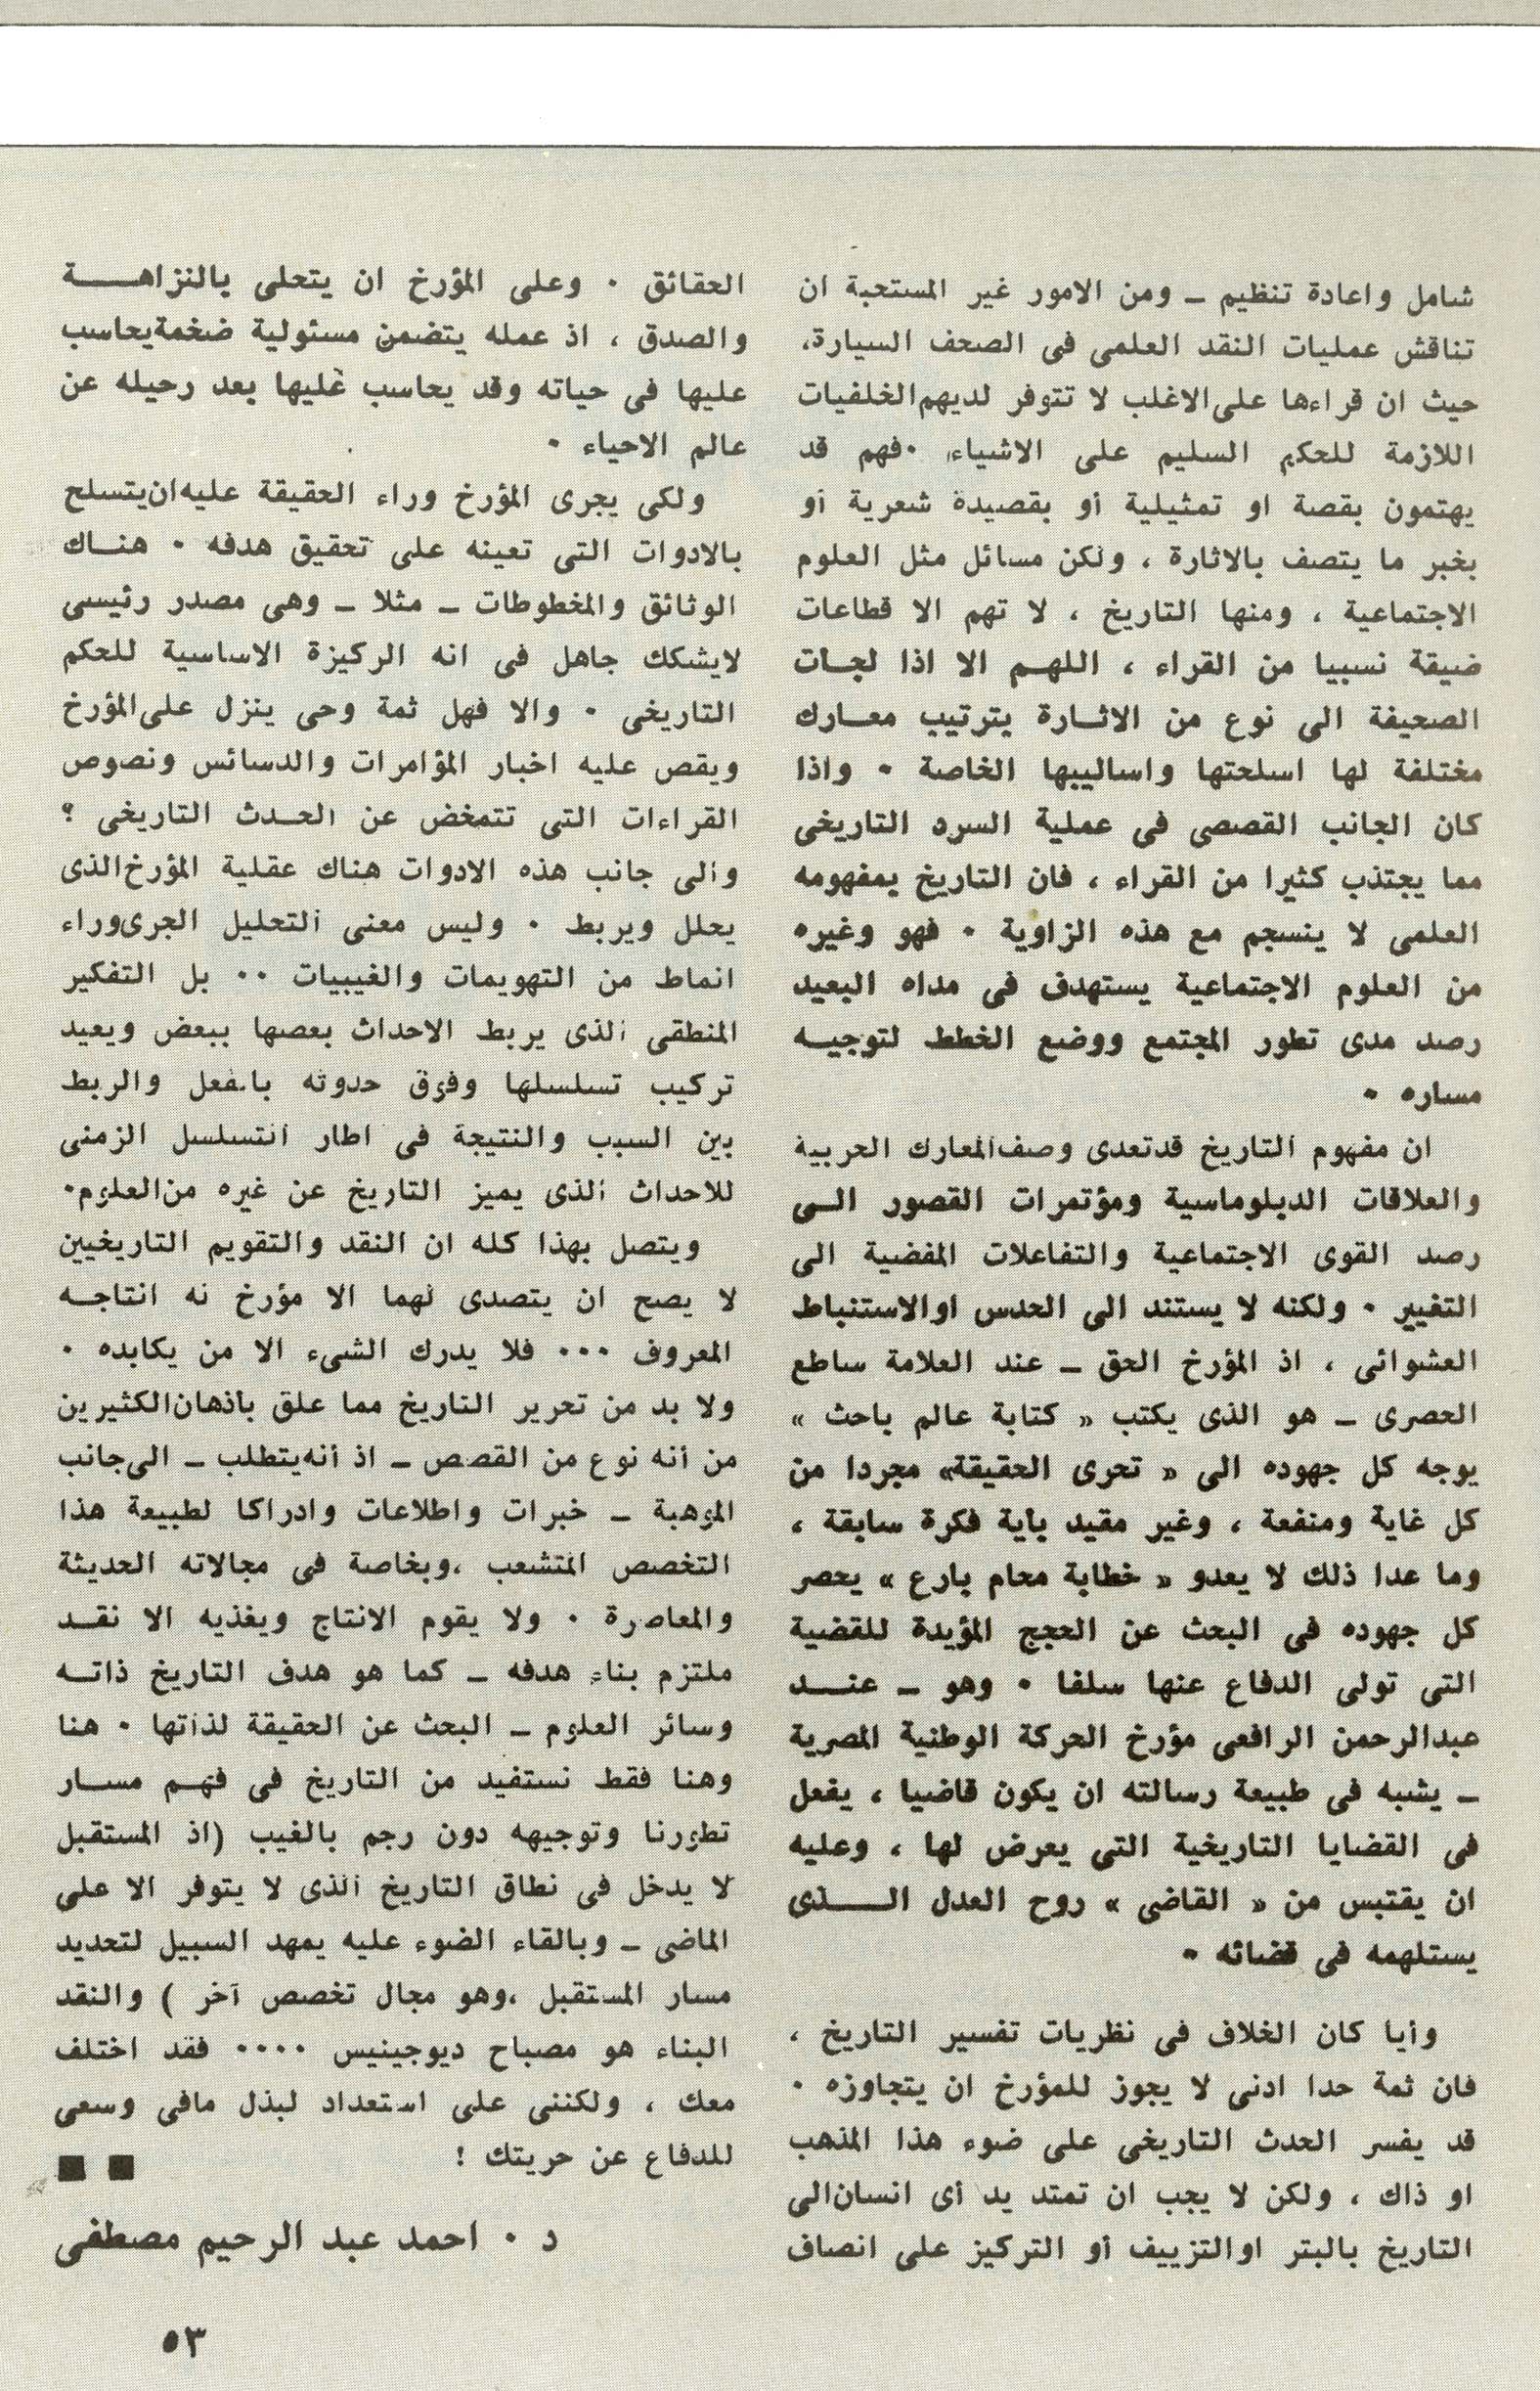 شامل واعادة تنظيم ــ ومن الامور غير المستحبة ان
تناقش عمليات النقد العلمى فى الصحف السيارة،
حيث ان قراءها على الاغلب لا تتوفر لديهم الخلفيات
اللازمة للحكم السليم على الاشياء ٠ فهم قد
يهتمون بقصة او تمثيلية أو بقصيدة شعرية أو
بخبر ما يتصف بالاثارة ، ولكن مسائل مثل العلوم
الاجتماعية ، ومنها التاريخ ، لا تهم الا قطاعات
ضيقة نسبيا من القراء ، اللهم الا اذا لجات
الصحيفة الى نوع من الاثارة بترتيب معارك
مختلفة لها اسلحتها واساليبها الخاصة ٠ واذا
كان الجانب القصصى فى عملية السرد التاريخى
مما يجتذب كثيرا من القراء ، فان التاريخ بمفهومه
العلمى لا ينسجم مع هذه الزاوية ٠ فهو وغيره
من العلوم الاجتماعية يستهدف فى مداه البعيد
رصد مدى تطور المجتمع ووضع الخطط لتوجيه
مساره ٠
ان مفهوم التاريخ قد تعدى وصف المعارك الحربية
والعلاقات الدبلوماسية ومؤتمرات القصور الى
رصد القوى الاجتماعية والتفاعلات المفضية الى
التغيير ٠ ولكنه لا يستند الى الحدس او الاستنباط
العشوائى ، اذ المؤرخ الحق ــ عند العلامة ساطع
الحصرى ــ هو الذى يكتب « كتابة عالم باحث »
يوجه كل جهوده الى « تحرى الحقيقة» مجردا من
كل غاية ومنفعة ، وغير مقيد باية فكرة سابقة ،
وما عدا ذلك لا يعدو « خطابة محام بارع » يحصر
كل جهوده فى البحث عن الحجج المؤيدة للقضية
التى تولى الدفاع عنها سلفا ٠ وهو ــ عند
عبدالرحمن الرافعى مؤرخ الحركة الوطنية المصرية
ــ يشبه فى طبيعة رسالته ان يكون قاضيا ، يفعل
فى القضايا التاريخية التى يعرض لها ، وعليه
ان يقتبس من « القاضى » روح العدل الذى
يستلهمه فى قضائه ٠
وأيا كان الخلاف فى نظريات تفسير التاريخ ،
فان ثمة حدا ادنى لا يجوز للمؤرخ ان يتجاوزه ٠
قد يفسر الحدث التاريخى على ضوء هذا المذهب
او ذاك ، ولكن لا يجب ان تمتد يد أى انسان الى
التاريخ بالبتر او التزييف أو التركيز على انصاف
الحقائق ٠ وعلى المؤرخ ان يتحلى بالنزاهة
والصدق ، اذ عمله يتضمن مسئولية ضخمة يحاسب
عليها فى حياته وقد يحاسب عليها بعد رحيله عن
عالم الاحياء ٠
ولكى يجرى المؤرخ وراء الحقيقة عليه ان يتسلح
بالادوات التى تعينه على تحقيق هدفه ٠ هناك
الوثائق والمخطوطات ــ مثلا ــ وهى مصدر رئيسى
لايشكك جاهل فى انه الركيزة الاساسية للحكم
التاريخى ٠ والا فهل ثمة وحى ينزل على المؤرخ
ويقص عليه اخبار المؤامرات والدسائس ونصوص
القراءات التى تتمخض عن الحدث التاريخى ؟
والى جانب هذه الادوات هناك عقلية المؤرخ الذى
يحلل ويربط ٠ وليس معنى التحليل الجرى وراء
انماط من التهويمات والغيبيات ٠٠ بل التفكير
المنطقى الذى يربط الاحداث بعصها ببعض ويعيد
تركيب تسلسلها وفوق حدوثه بالفعل والربط
بين السبب والنتيجة فى اطار التسلسل الزمنى
للاحداث الذى يميز التاريخ عن غيره من العلوم٠
ويتصل بهذا كله ان النقد والتقويم التاريخيين
لا يصح ان يتصدى لهما الا مؤرخ له انتاجه
المعروف ٠٠٠ فلا يدرك الشىء الا من يكابده ٠
ولا بد من تحرير التاريخ مما علق بأذهان الكثيرين
من أنه نوع من القصص ــ اذ أنه يتطلب ــ الى جانب
الموهبة ــ خبرات واطلاعات وادراكا لطبيعة هذا
التخصص المتشعب ،وبخاصة فى مجالاته الحديثة
والمعاصرة ٠ ولا يقوم الانتاج ويغذيه الا نقد
ملتزم بناء هدفه ــ كما هو هدف التاريخ ذاته
وسائر العلوم ــ البحث عن الحقيقة لذاتها ٠ هنا
وهنا فقط نستفيد من التاريخ فى فهم مسار
تطورنا وتوجيهه دون رجم بالغيب (اذ المستقبل
لا يدخل فى نطاق التاريخ الذى لا يتوفر الا على
الماضى ــ وبالقاء الضوء عليه يمهد السبيل لتحديد
مسار المستقبل ،وهو مجال تخصص آخر ) والنقد
البناء هو مصباح ديوجينيس ٠٠٠٠ فقد اختلف
معك ، ولكننى على استعداد لبذل مافى وسعى
للدفاع عن حريتك !
د ٠ احمد عبد الرحيم مصطفى
٥٣